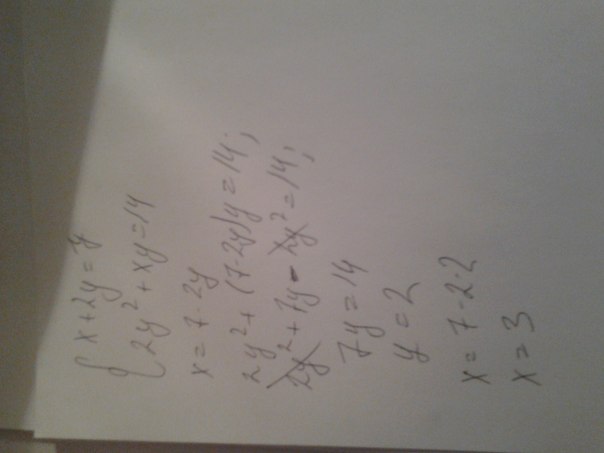 { x + 2y = 7
2y² + xy = 14
x = 7 - 2y
2y² + (7-2y)y = 14;
2y² + 7y - 2y² = 14;
7y = 14
y = 2
x = 7 - 2·2
x = 3